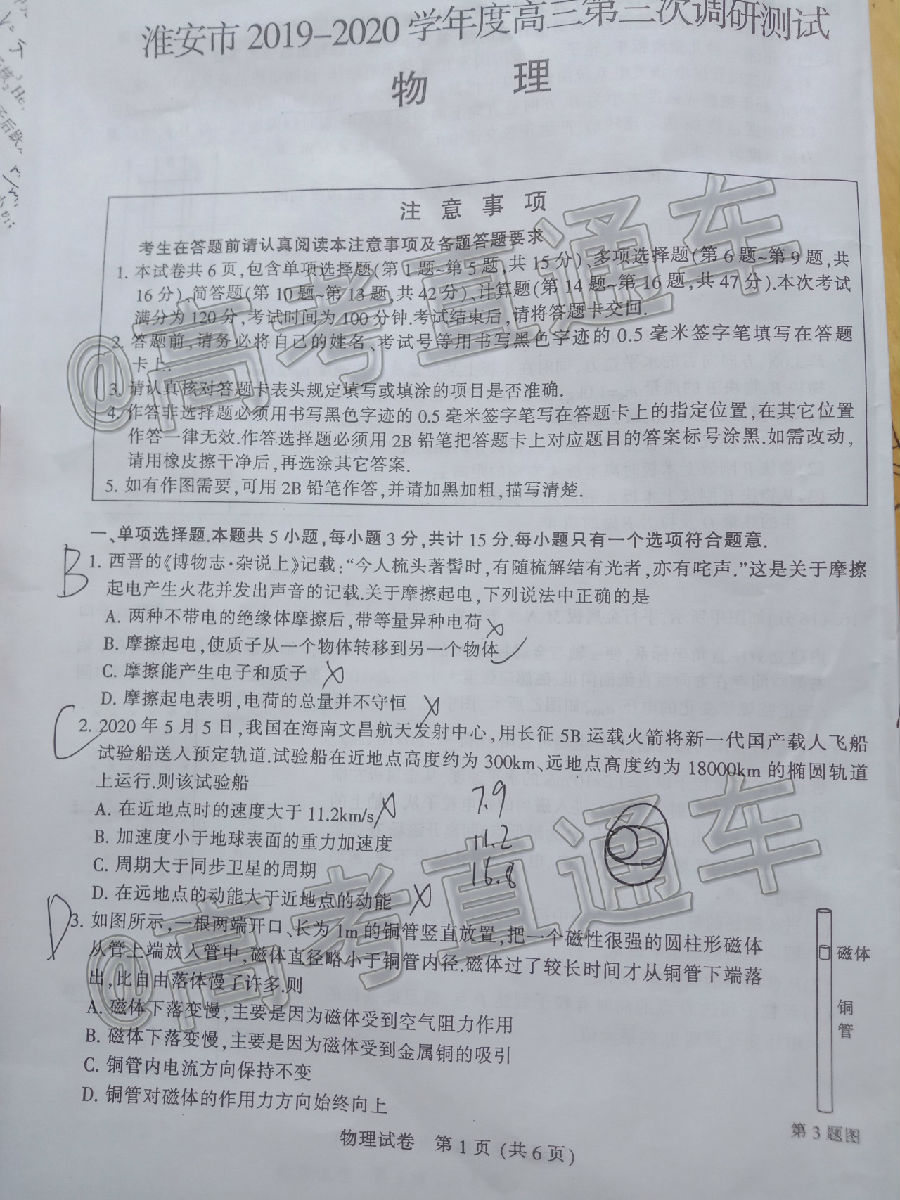 淮安市 2019-2020 学年度高三第三次调研测试
物 理
注 意 事 项
考生在答题前请认真阅读本注意事项及各题答题要求
1. 本试卷共 6 页,包含单项选择题(第 1 题~第 5 题,共 15 分)、多项选择题(第 6 题~第 9 题,共
16 分)、简答题(第 10 题~第 13 题,共 42 分)、计算题(第 14 题~第 16 题,共 47 分).本次考试
满分为 120 分,考试时间为 100 分钟.考试结束后,请将答题卡交回.
2. 答题前,请务必将自己的姓名、考试号等用书写黑色字迹的 0.5 毫米签字笔填写在答题
卡上.
3. 请认真核对答题卡表头规定填写或填涂的项目是否准确.
4. 作答非选择题必须用书写黑色字迹的 0.5 毫米签字笔写在答题卡上的指定位置,在其它位置
作答一律无效.作答选择题必须用 2B 铅笔把答题卡上对应题目的答案标号涂黑.如需改动,
请用橡皮擦干净后,再选涂其它答案.
5. 如有作图需要,可用 2B 铅笔作答,并请加黑加粗,描写清楚.
@高考直通车
一、单项选择题.本题共 5 小题,每小题 3 分,共计 15 分.每小题只有一个选项符合题意.
B 1. 西晋的《博物志·杂说上》记载:“今人梳头著髻时,有随梳解结有光者,亦有咤声.”这是关于摩擦
起电产生火花并发出声音的记载.关于摩擦起电,下列说法中正确的是
A. 两种不带电的绝缘体摩擦后,带等量异种电荷
B. 摩擦起电,使质子从一个物体转移到另一个物体
C. 摩擦能产生电子和质子
D. 摩擦起电表明,电荷的总量并不守恒
C 2. 2020 年 5 月 5 日,我国在海南文昌航天发射中心,用长征 5B 运载火箭将新一代国产载人飞船
试验船送入预定轨道.试验船在近地点高度约为 300km、远地点高度约为 18000km 的椭圆轨道
上运行.则该试验船
A. 在近地点时的速度大于 11.2km/s 7.9
B. 加速度小于地球表面的重力加速度 11.2
C. 周期大于同步卫星的周期 16.8
D. 在远地点的动能大于近地点的动能
@高考直通车
D 3. 如图所示,一根两端开口、长为 1m 的铜管竖直放置,把一个磁性很强的圆柱形磁体
从管上端放入管中,磁体直径略小于铜管内径.磁体过了较长时间才从铜管下端落
出,比自由落体慢了许多.则
A. 磁体下落变慢,主要是因为磁体受到空气阻力作用
B. 磁体下落变慢,主要是因为磁体受到金属铜的吸引
C. 铜管内电流方向保持不变
D. 铜管对磁体的作用力方向始终向上
磁体
铜
管
第 3 题图
物理试卷 第 1 页 (共 6 页)